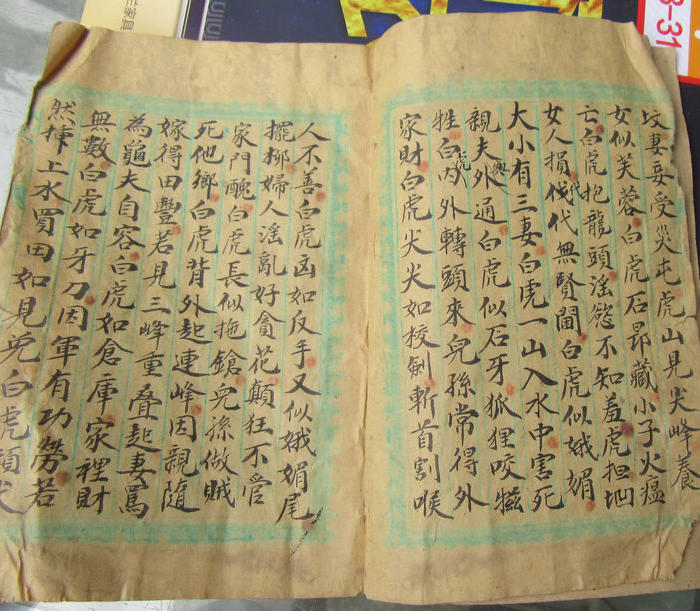 坟妻妾受災屯虎山見尖峰養
女似芙蓉白虎石昂藏小子火瘟
亡白虎抱龍頭淫慾不知羞虎担凹
女人損伐代代無賢圖白虎似娥媚
大小有三妻白虎一山入水中害死
親夫外通與白虎似石牙狐狸咬牲
牲白虎内外轉頭來兒孫常得外
家財白虎尖尖如校劍斬首割喉
人不善白虎凶如反手又似娥媚尾
擺柳婦人淫亂好貪花顛狂不管
家門醜白虎長似拖鎗兒孫做賊
死他鄉白虎背外起連峰因親隨
嫁得田豐若見三峰重叠起妻罵
為龜夫自容白虎如倉庫家裡財
無數白虎如牙刀因軍有功勞若
然挿上水買田如見兎白虎頭
家具
3-31